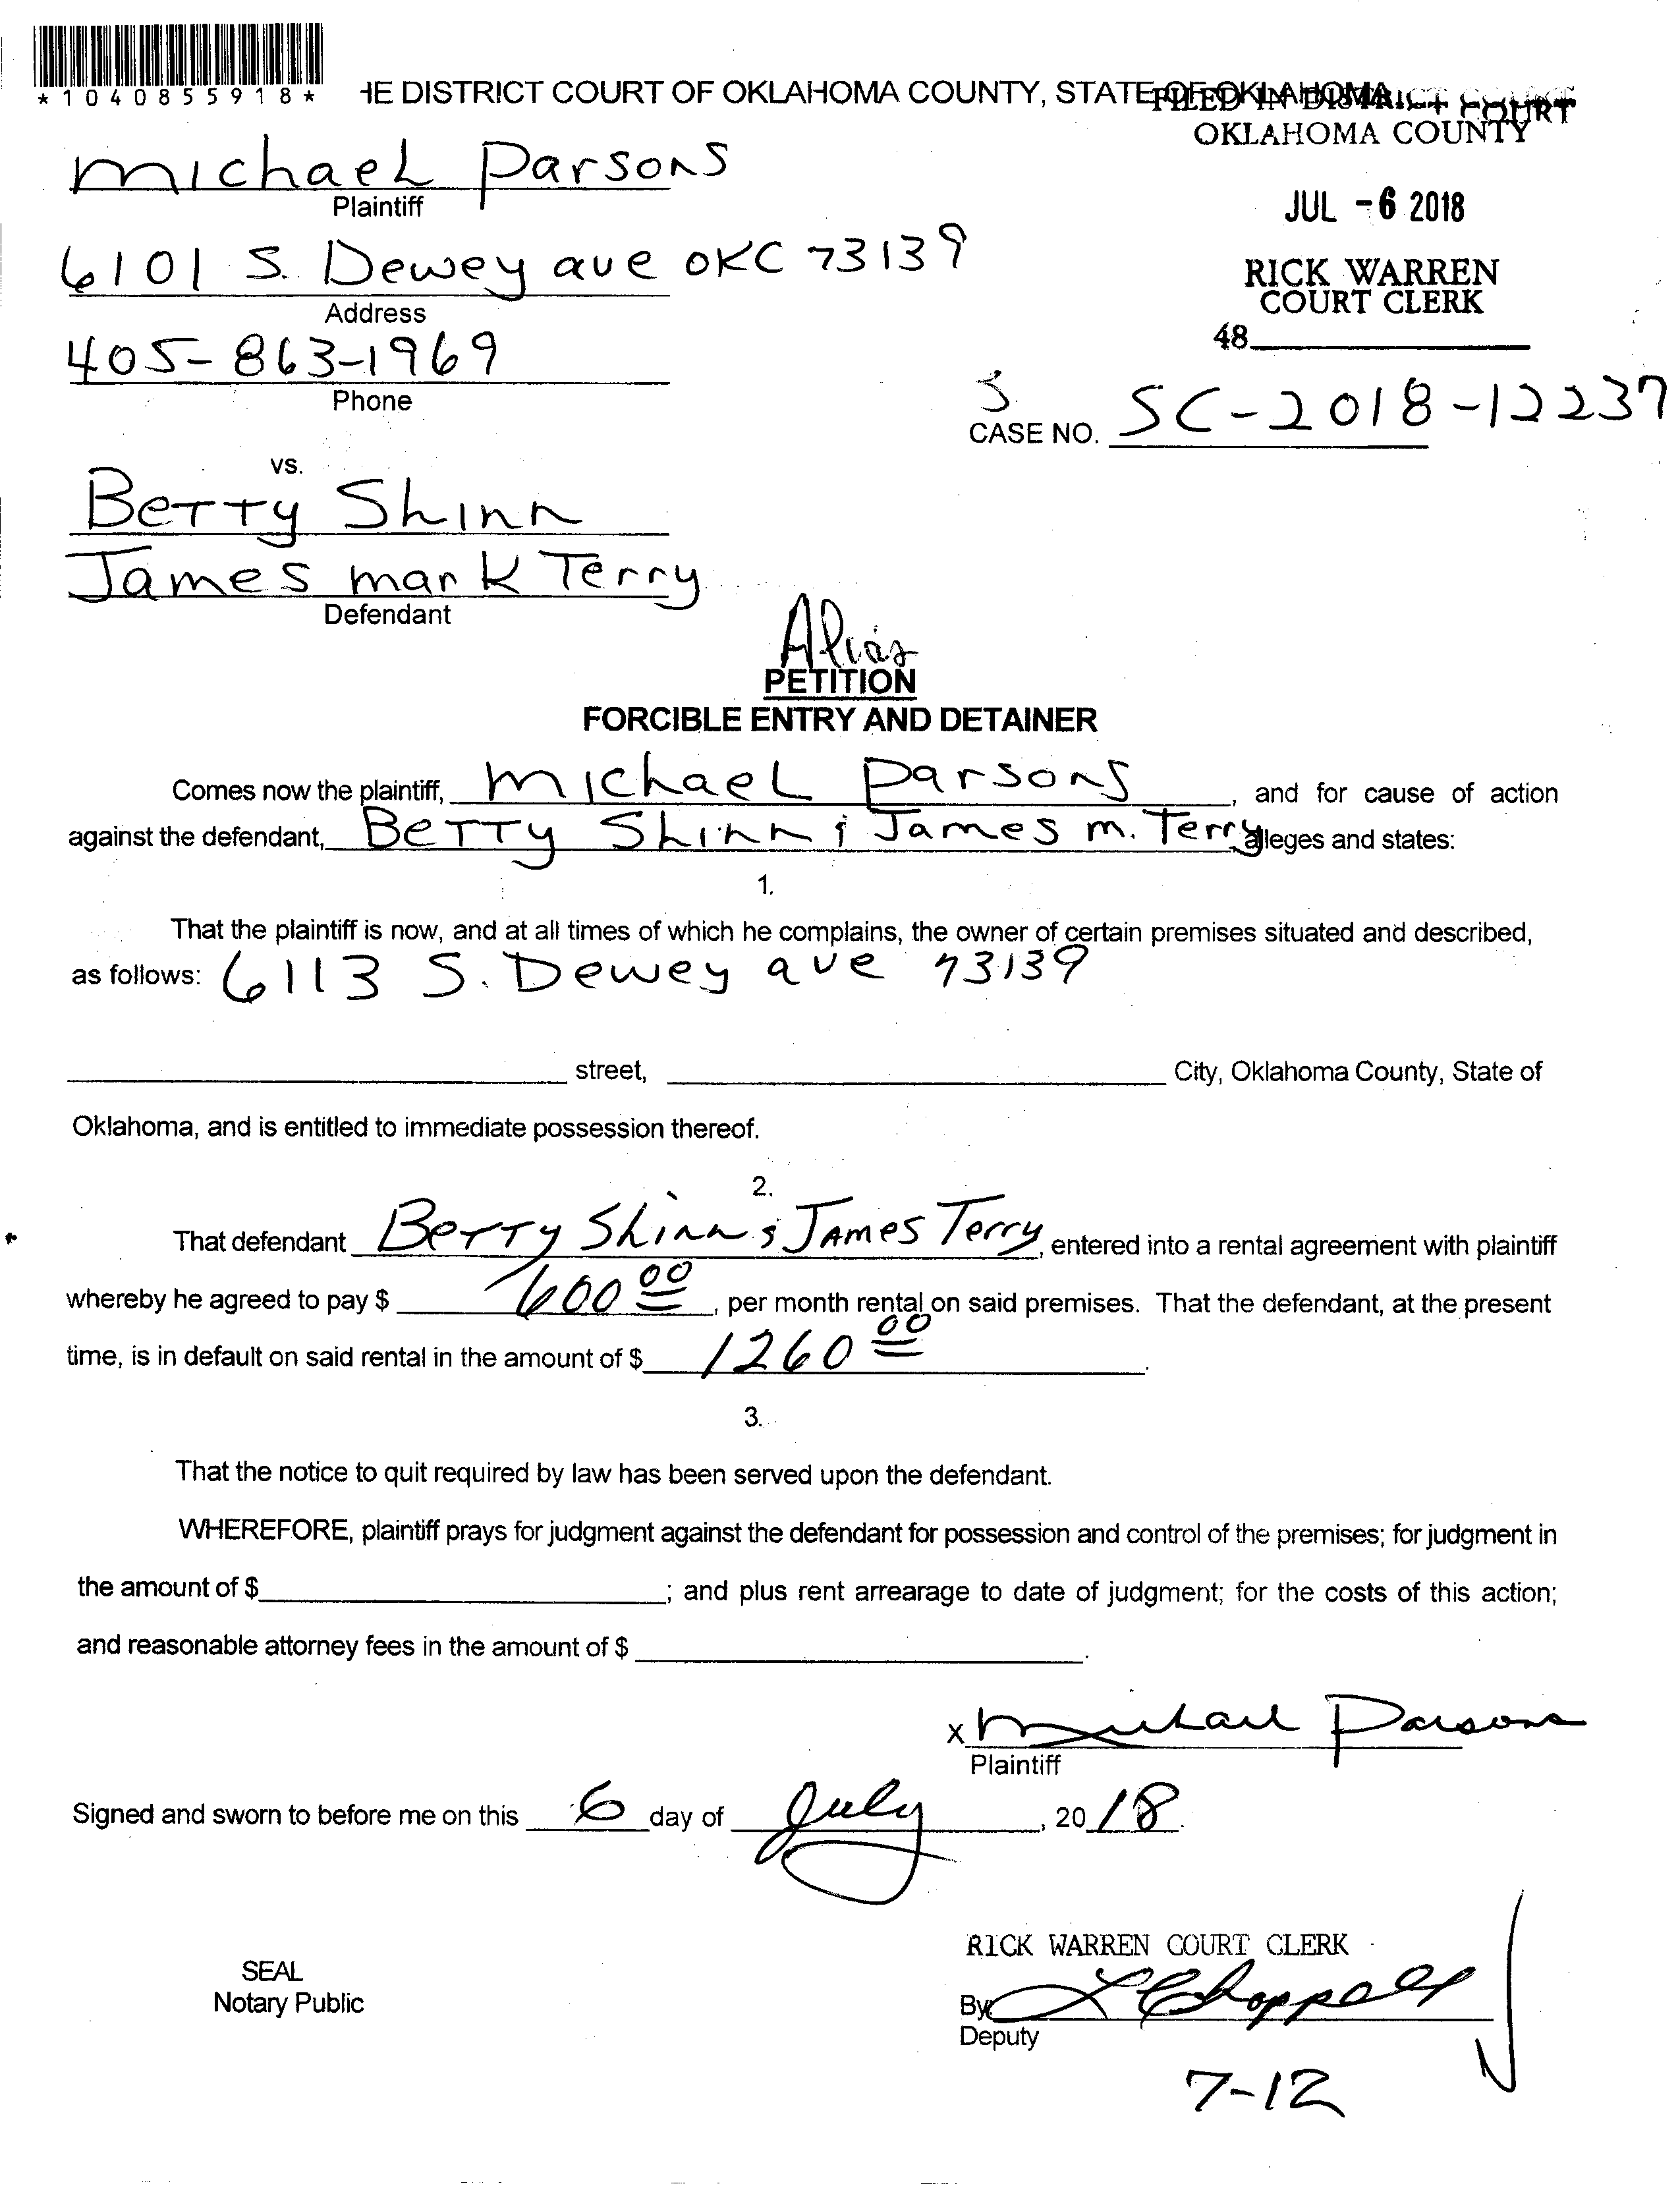 *1040855918*
HE DISTRICT COURT OF OKLAHOMA COUNTY, STATE OF OKLAHOMA
FILED IN DISTRICT COURT
OKLAHOMA COUNTY
Michael Parsons
Plaintiff
JUL -6 2018
6101 S. Dewey ave OKC 73139
Address
RICK WARREN
COURT CLERK
405-863-1969
Phone
48
CASE NO. SC-2018-12237
vs.
Betty Shinn
James mark Terry
Defendant
Alias
PETITION
FORCIBLE ENTRY AND DETAINER
Comes now the plaintiff, Michael Parsons, and for cause of action
against the defendant, Betty Shinn & James m. Terry alleges and states:
1.
That the plaintiff is now, and at all times of which he complains, the owner of certain premises situated and described,
as follows: 6113 S. Dewey ave 73139
street, City, Oklahoma County, State of
Oklahoma, and is entitled to immediate possession thereof.
2.
That defendant Betty Shinn & James Terry, entered into a rental agreement with plaintiff
whereby he agreed to pay $ 600 00, per month rental on said premises. That the defendant, at the present
time, is in default on said rental in the amount of $ 1260 00.
3.
That the notice to quit required by law has been served upon the defendant.
WHEREFORE, plaintiff prays for judgment against the defendant for possession and control of the premises; for judgment in
the amount of $; and plus rent arrearage to date of judgment; for the costs of this action;
and reasonable attorney fees in the amount of $.
x Michael Parsons
Plaintiff
Signed and sworn to before me on this 6 day of July, 2018.
RICK WARREN COURT CLERK
SEAL
Notary Public
By: L Chappell
Deputy
7-12